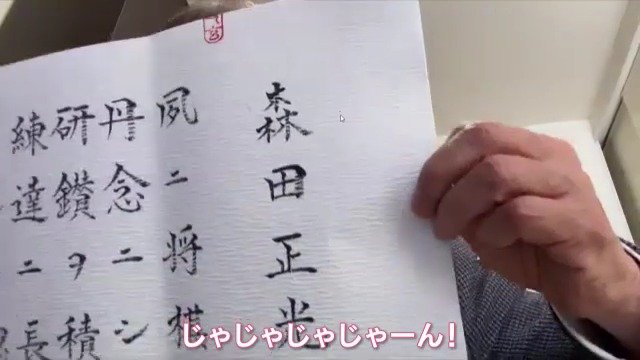 森田正光
夙ニ将棋
丹念ニシ
研鑽ヲ積
練達ニ長
じゃじゃじゃじゃーん!